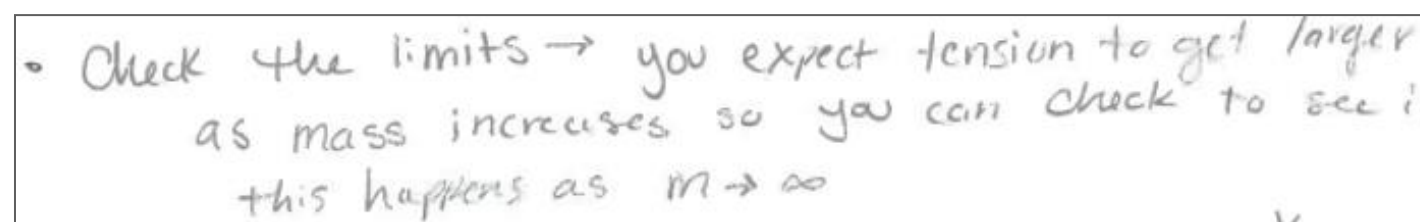 • Check the limits → you expect tension to get larger
as mass increases so you can check to see i
this happens as m → ∞